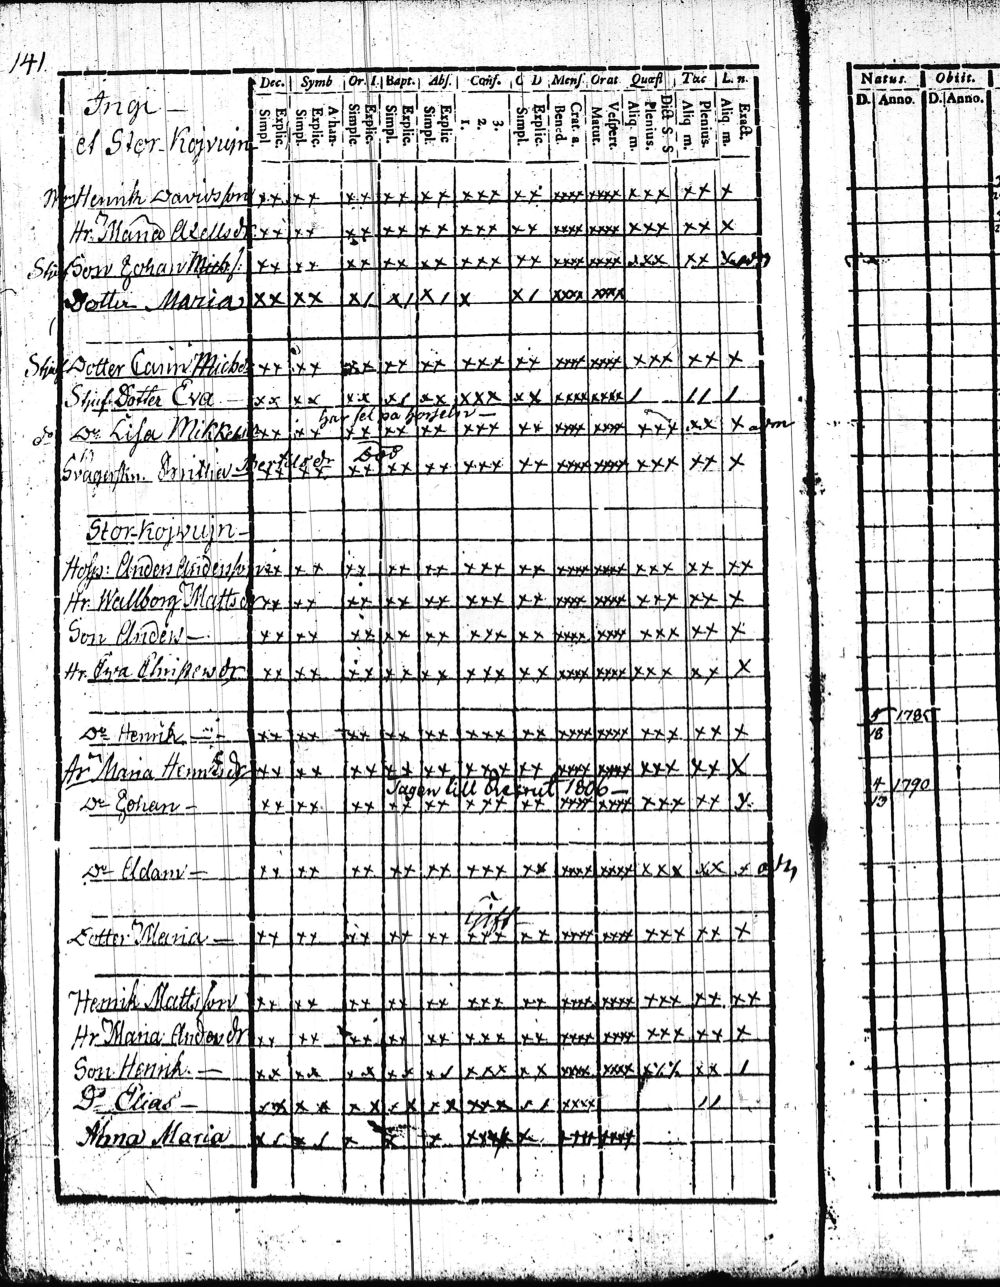 141
Dec. Symb Or. I. Bapt. Abs. Conf. C D Mens Orat Quæst Tac L. n.
Simpl Explic. Simpl. Explic. Athan. Simplic Explic. Simpl. Explic. Simpl. Explic 1. 2. 3. Simpl. Explic. Bened. Grat. a. Matut. Vespert. Aliq. m. Plenius. Dict S. S Aliq m. Plenius. Aliq. m. Exact.
Natus. Obiit.
D. Anno. D. Anno.
Ingi —
et Stor-Kojvujn
Henrik Davidsson xx xx xx xx xx xxx xx xxxx xxxx xxx xx x
Hr. Maria Axellsdr xx xx xx xx xx xxx xx xxxx xxxx xxx xx x
Son Johan Michs. xx xx xx xx xx xxx xx xxxx xxxx xxx xx x
Dotter Maria xx xx x/ x/ x/ x x/ xxx xxxx
Stjuf Dotter Carin Michels xx xx xx xx xx xxx xx xxxx xxxx xxx xx x
Stjuf Dotter Eva — xx xx xx x/ xx xxx xx xxxx xxxx / // /
har fel på hörseln —
Do Lisa Mikkels xx xx xx xx xx xxx xx xxxx xxxx xxx xx x
Svägerskn. Bertilsdr xx xx xx xx xx xxx xx xxxx xxxx xxx xx x
Stor-Kojvujn —
Anders Andersson xx xx xx xx xx xxx xx xxxx xxxx xxx xx xx
Hr. Wallborg Mattsdr xx xx xx xx xx xxx xx xxxx xxxx xxx xx x
Son Anders — xx xx xx xx xx xxx xx xxxx xxxx xxx xx x
Hr. Eva xx xx xx xx xx xxx xx xxxx xxxx xxx xx x
Do Henrik — xx xx xx xx xx xxx xx xxxx xxxx xxx xx x
5/18 1785
Hr Maria Henrsdr xx xx xx xx xx xxx xx xxxx xxxx xxx xx x
Tagen till Recrut 1806 —
Do Johan — xx xx xx xx xx xxx xx xxxx xxxx xxx xx x
4/13 1790
Do Adam — xx xx xx xx xx xxx xx xxxx xxxx xxx xx x
Gift
Dotter Maria — xx xx xx xx xx xxx xx xxxx xxxx xxx xx x
Henrik Mattsson xx xx xx xx xx xxx xx xxxx xxxx xxx xx xx
Hr Maria Andersdr xx xx xx xx xx xxx xx xxxx xxxx xxx xx x
Son Henrik — xx xx xx xx x/ xxx xx xxxx xxxx xxx xx /
Do Elias — xx xx xx xx xx xxx // xxxx //
Anna Maria x/ x/ x x x xxxx x xxxx xxxx